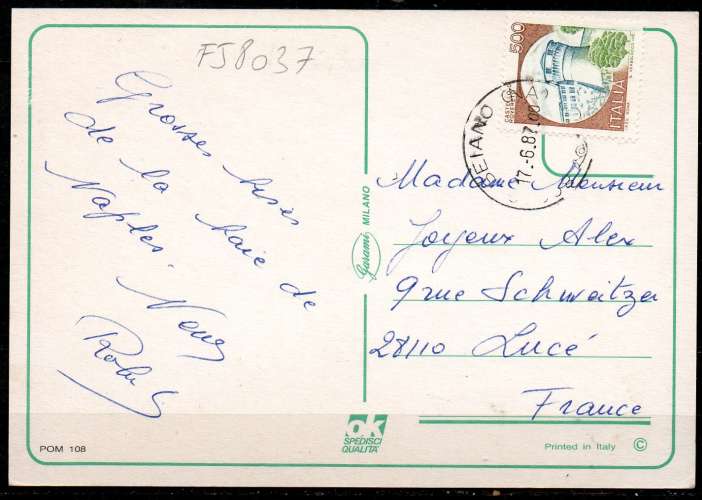 FJ8037
Grosses bises
de la baie de
Naples.
500
ITALIA
SEIANO
17.-6.87.00
Madame Monsieur
Joyeux Alex
9 rue Schweitzer
28110 Lucé
France
Garami MILANO
ok
SPEDISCI
QUALITA'
POM 108
Printed in Italy ©